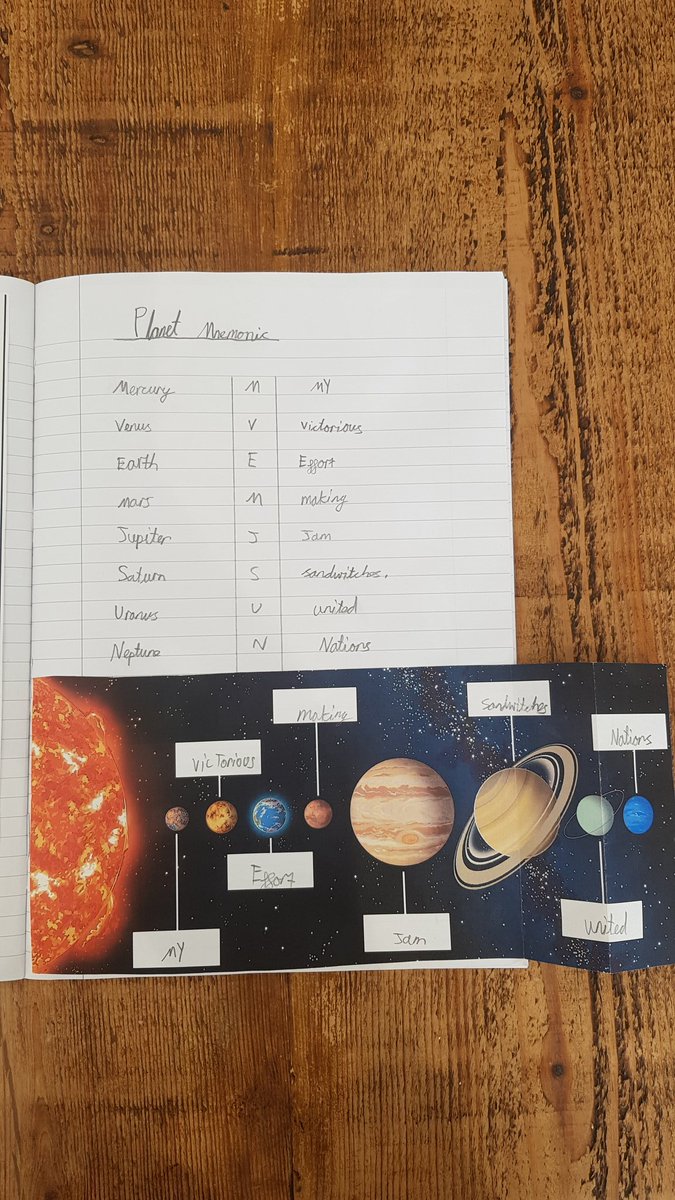 Planet Mnemonic
Mercury M MY
Venus V Victorious
Earth E Effort
Mars M Making
Jupiter J Jam
Saturn S sandwitches.
Uranus U united
Neptune N Nations
Making
Sandwitches
Nations
VicTorious
Effort
United
Jam
MY